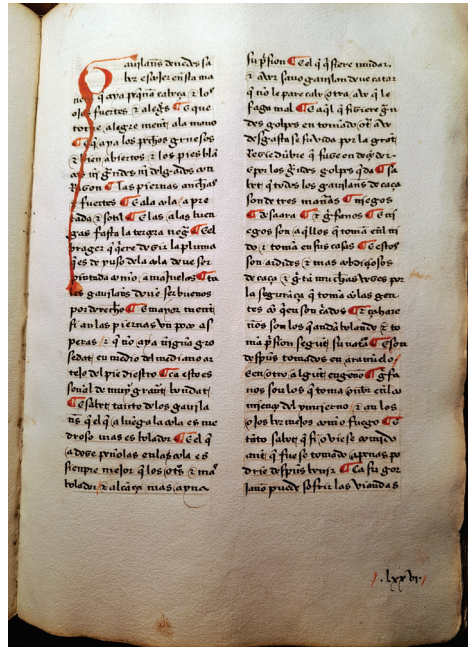 Gauilans deuedes sa
ber escoler en sta ma
nera q̃ aya peq̃na cabeça ⁊ los
ojos fuertes ⁊ alegs̃ ¶ E que
torne alegre ment ala mano
¶ E q̃ aya los pechos gruesos
⁊ bien abiertos ⁊ los pies blã
cos ⁊ gñdes ⁊ delgados con
Razon ¶ las piernas anchas
⁊ fuertes ¶ E la cola apre
tada ⁊ sotil ¶ E las alas luen
gas fasta la terçera neg̃ ¶ E el
brager q̃ q̃ere dezir la pluma
q̃ es de yuso dela cola deue ser
pintada como amasuelas ¶ ta
les gauilans deuẽ ser buenos
por derecho ¶ E mayor ment
si an las piernas vn poco as
peras ⁊ q̃ no aya nĩguna gro
sedat en medio del mediano ar
tejo del pie diestro ¶ Ca esto es
señal de muy grant bondat
¶ E sabet tanto delos gauila
ns̃ q̃ el q̃ a luega la cola es me
droso mas es bolador ¶ E el q̃
a dose peñolas en la cola es
siempre mejor q̃ los ots̃ ⁊ mas
bolador ⁊ alcãça mas ayna
su p̃sion ¶ E el q̃ q̃siere mudar
⁊ auer sano gauilan deue catar
q̃ no le pare catar otra aue q̃ le
faga mal ¶ E aq̃l q̃ fiziere gñ
des golpes en tomãdo ot̃ aue
desgasta se su vida por la grãt
Rezie dũbre q̃ fase en descender
E por los gñdes golpes q̃ da ¶ Sa
bet q̃ todos los gauilans de caça
son de tres mañas ¶ niegos
¶ de saara ¶ ⁊ gs̃anos ¶ E ni
egos son aq̃llos q̃ toma enl ni
do ⁊ toma en sus casas ¶ E estos
son ardides ⁊ mas cobdiçosos
de caça ⁊ gritã muchas vezes por
la segurãça q̃ tomã cõ las gen
tes cõ q̃en son cados ¶ ⁊ çahare
ños son los q̃ andã bolando ⁊ to
mã p̃sion segũt su natã ¶ E son
despũs tomados en aranuelo
E en otro algũt engeño ¶ E gs̃a
nos son los q̃ toma õbr enl co
mienço del ynuierno ⁊ an los
ojos bermejos como fuego ¶ E
tãto sabet q̃ si ouiese comido
ant q̃ fuese tomado apenas po
drie despũs beuir ¶ Ca su gor
janõ puede sofrir las viandas
.lxxvi.